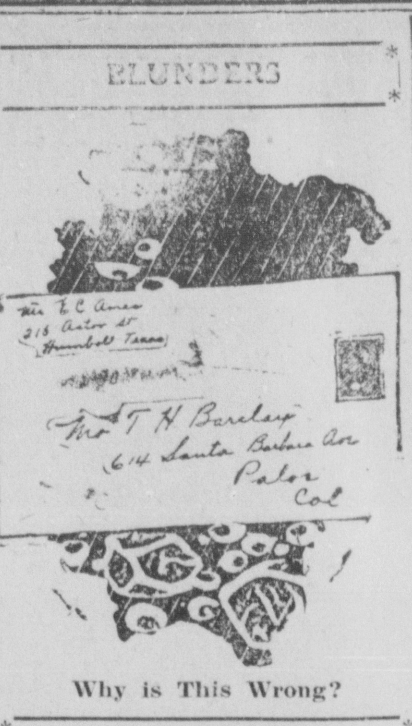 BLUNDERS
Mr E C Ames
215 Astor St
Humbolt Texas
Mrs T H Barclay
614 Santa Barbara Ave
Palos
Col
Why is This Wrong?